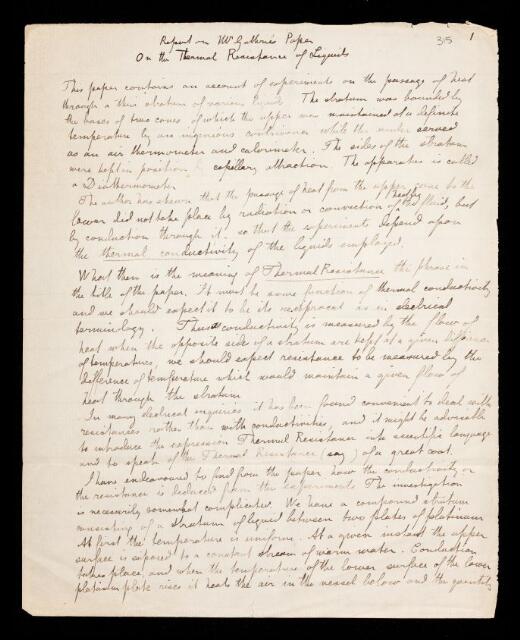 Report on Mr Guthrie's Paper
On the Thermal Resistance of Liquids
315 1
This paper contains an account of experiments on the passage of heat
through a thin stratum of various liquids. The stratum was bounded by
the bases of two cones of which the upper was maintained at a definite
temperature by an ingenious contrivance while the under served
as an air thermometer and calorimeter. The sides of the stratum
were kept in position by capillary attraction. The apparatus is called
a Diathermometer
The author has shewn that the passage of heat from the upper cone to the
lower did not take place by radiation or convection of the heated fluid, but
by conduction through it, so that the experiments depend upon
the thermal conductivity of the liquids employed.
What then is the meaning of Thermal Resistance the phrase in
the title of the paper. It must be some function of thermal conductivity
and we should expect it to be its reciprocal as in electrical
terminology. Thus as conductivity is measured by the flow of
heat when the opposite sides of a stratum are kept at a given difference
of temperatures, we should expect resistance to be measured by the
difference of temperature which would maintain a given flow of
heat through the stratum
In many electrical inquiries it has been found convenient to deal with
resistances rather than with conductivities, and it might be advisable
to introduce the expression Thermal Resistance into scientific language
and to speak of the Thermal Resistance (say) of a great coat.
I have endeavoured to find from the paper how the conductivity or
the resistance is deduced from the experiments The investigation
is necessarily somewhat complicated. We have a compound stratum
consisting of a stratum of liquid between two plates of platinum
At first the temperature is uniform. At a given instant the upper
surface is exposed to a constant stream of warm water. Conduction
takes place, and when the temperature of the lower surface of the lower
platinum plate rises it heats the air in the vessel below and the quantity